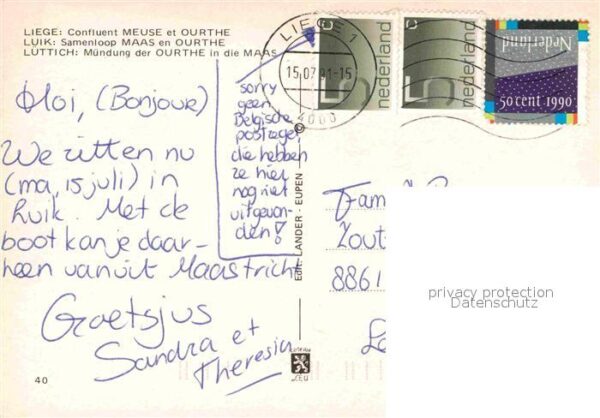 LIEGE: Confluent MEUSE et OURTHE
LUIK: Samenloop MAAS en OURTHE
LÜTTICH: Mündung der OURTHE in die MAAS
Oloi, (Bonjour)
We zitten nu
(ma, 15 juli) in
Luik. Met de
boot kan je daar-
heen vanuit Maastricht
Groetsjus
Sandra et
Theresia
sorry
geen
Belgische
postzegel,
die hebben
ze hier
nog niet
uitgevon-
den!
LIEGE 1
15.07.91-15
4000
nederland
nederland
Nederland
50 cent 1990
Edit. LANDER - EUPEN ©
Fam
Zout
8861
privacy protection
Datenschutz
40